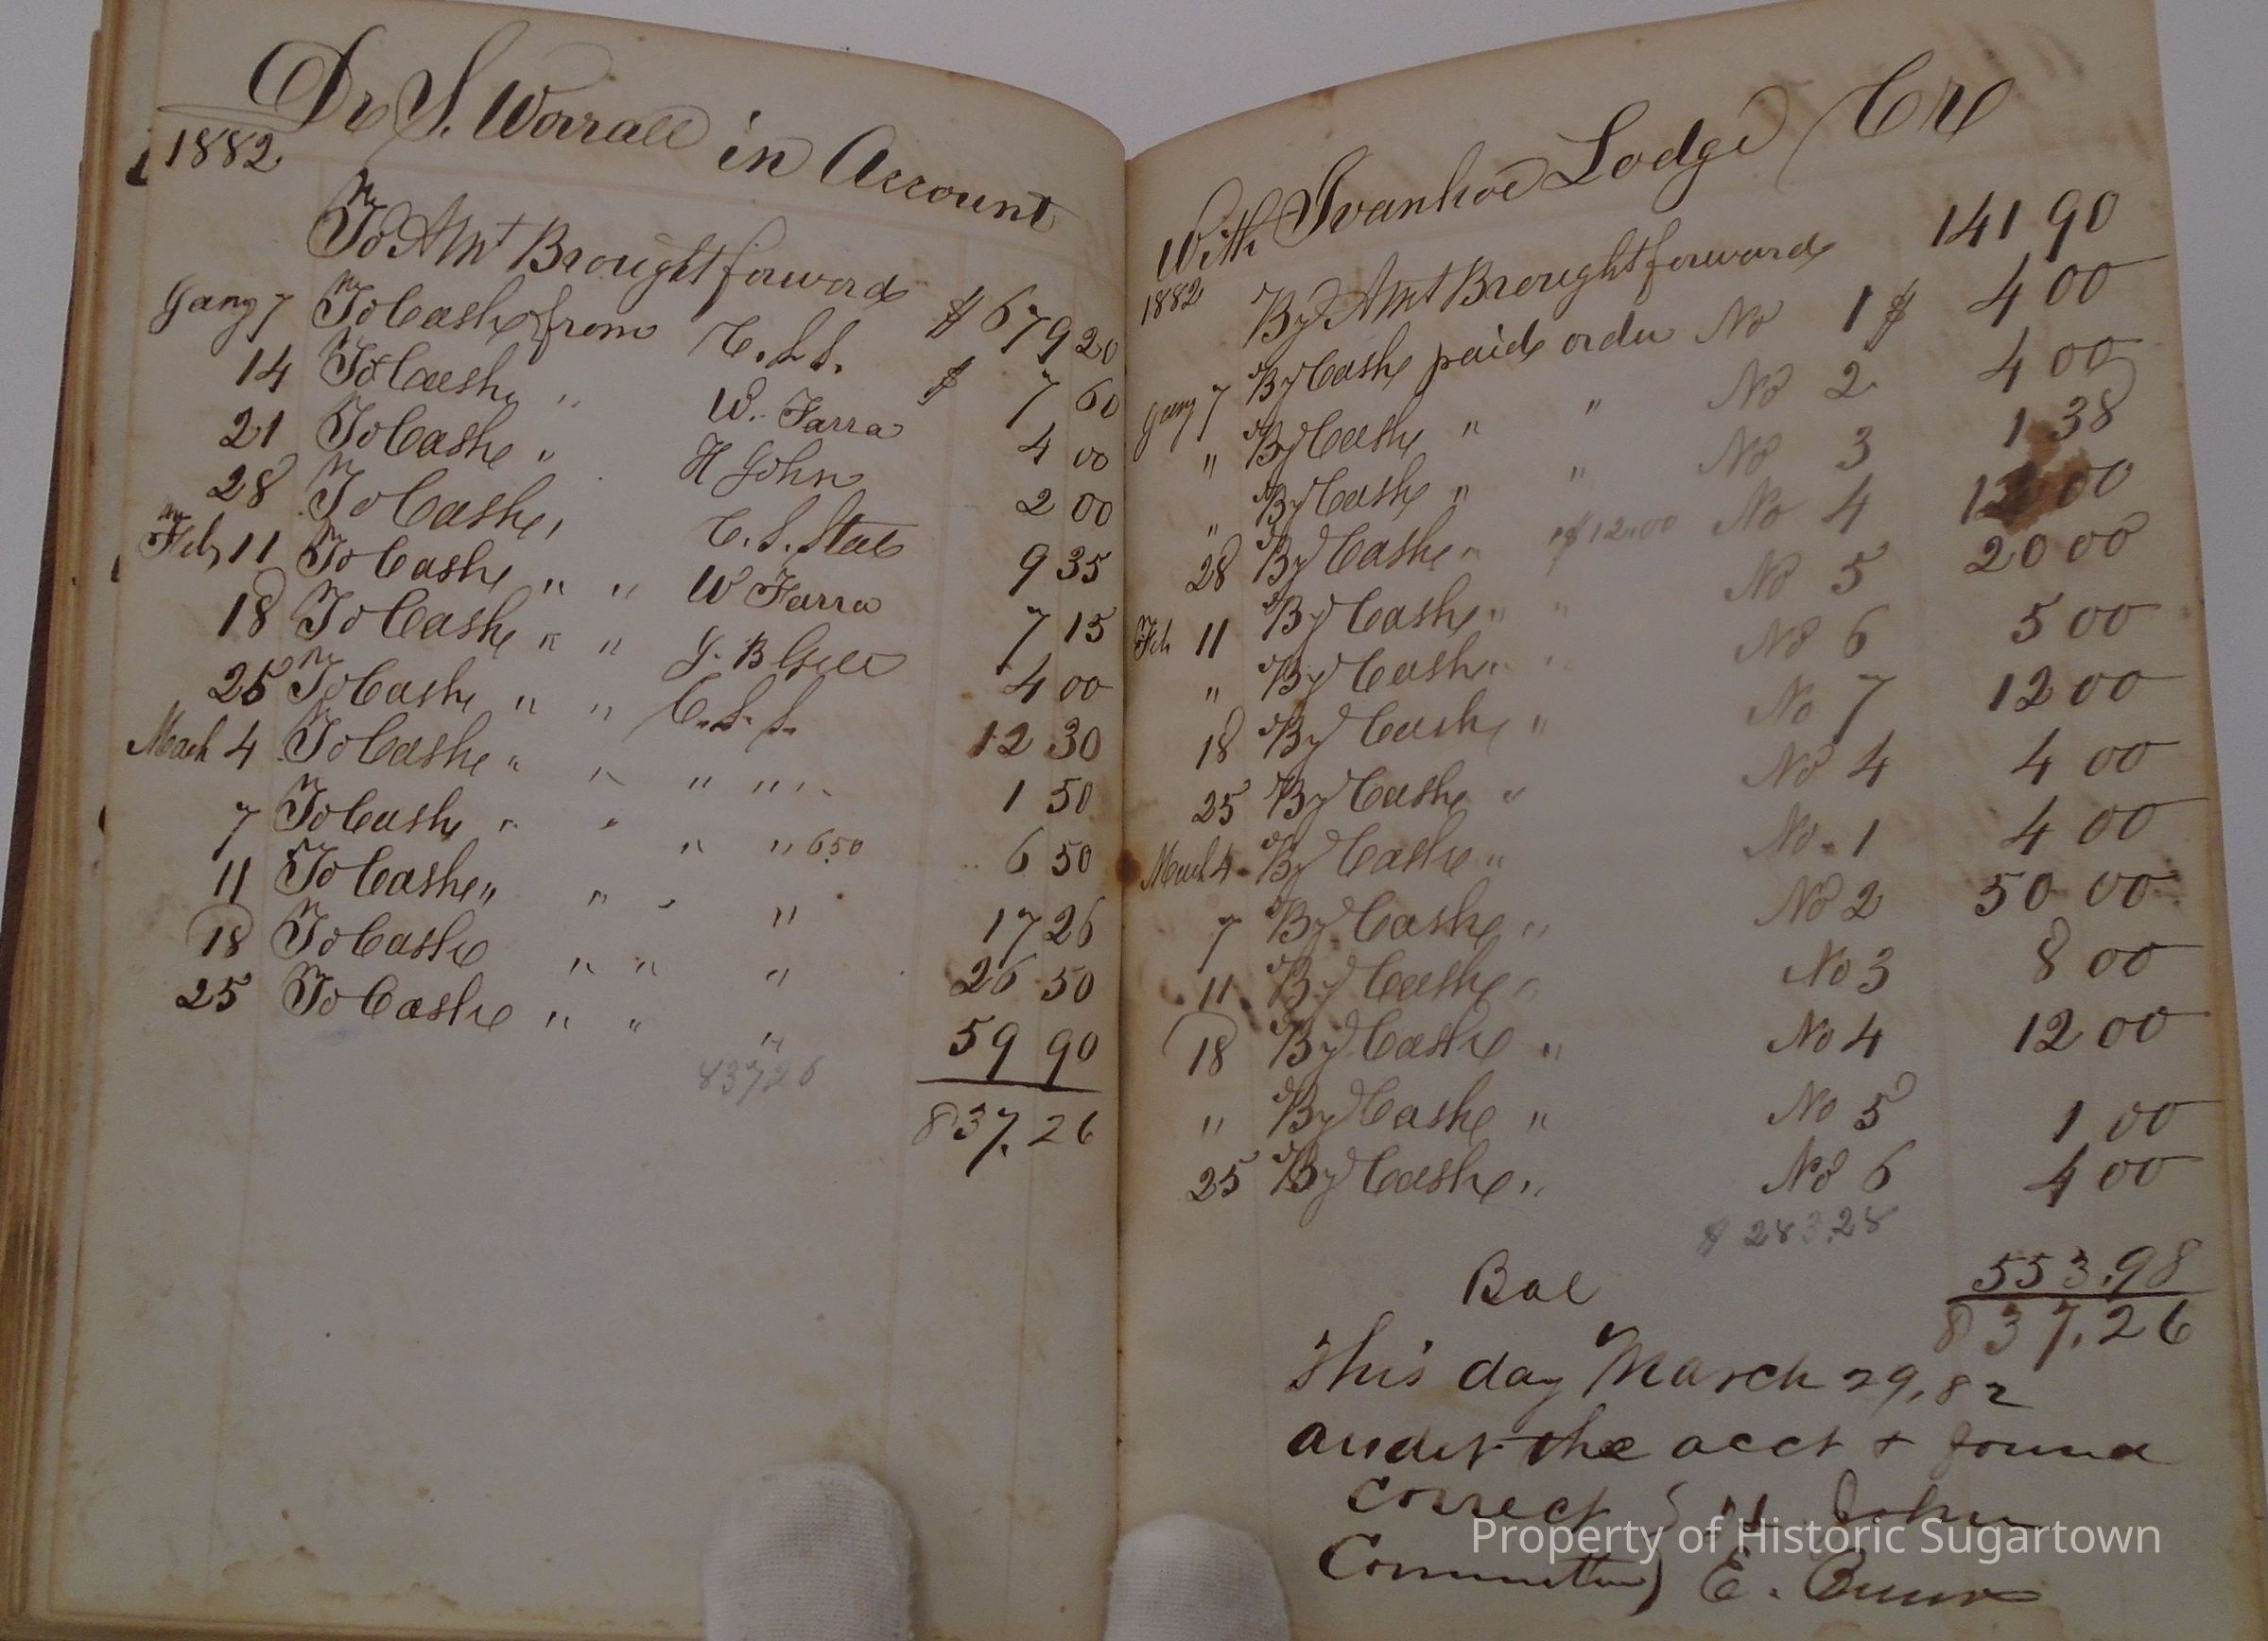 Dr S. Worrall in Account
1882
To Amt Brought forward $ 679 20
Jany 7 To Cash from C. S. S. $ 7 60
14 To Cash " W. Farra 4 00
21 To Cash " H John 2 00
28 To Cash " C. S. Steel 9 35
Feb 11 To Cash " " W Farra 7 15
18 To Cash " " J. B Gill 4 00
25 To Cash " " C. S. S. 12 30
March 4 To Cash " " " " " 1 50
7 To Cash " " " " 6.50 6 50
11 To Cash " " " " 17 26
18 To Cash " " " 26 50
25 To Cash " " " 59 90
837 26
837.26
With Ivanhoe Lodge Cr
1882 By Amt Brought forward 141 90
Jany 7 By Cash paid order No 1 $ 4 00
" By Cash " " No 2 4 00
" By Cash " " No 3 1 38
28 By Cash " $12.00 No 4 12 00
Feb 11 By Cash " " No 5 20 00
" By Cash " " No 6 5 00
18 By Cash " No 7 12 00
25 By Cash " No 4 4 00
March 4 By Cash " No. 1 4 00
7 By Cash " No 2 50 00
11 By Cash " No 3 8 00
18 By Cash " No 4 12 00
" By Cash " No 5 1 00
25 By Cash " No 6 4 00
$ 283.28
Bal 553.98
837.26
This day March 29, 82
audit the acct + found
correct } H. John
Committee } E.
Property of Historic Sugartown